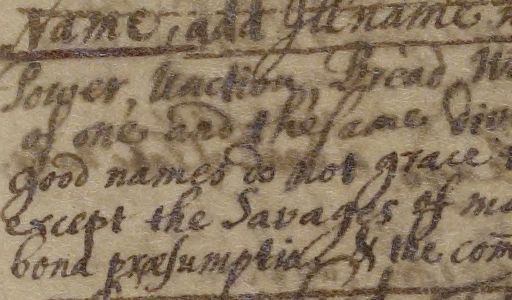 Name, add Ill name
Power, Unction, Bread, W
of one and the same div
good names do not grace
except the Savages of m
bona præsumptia, & the com̄